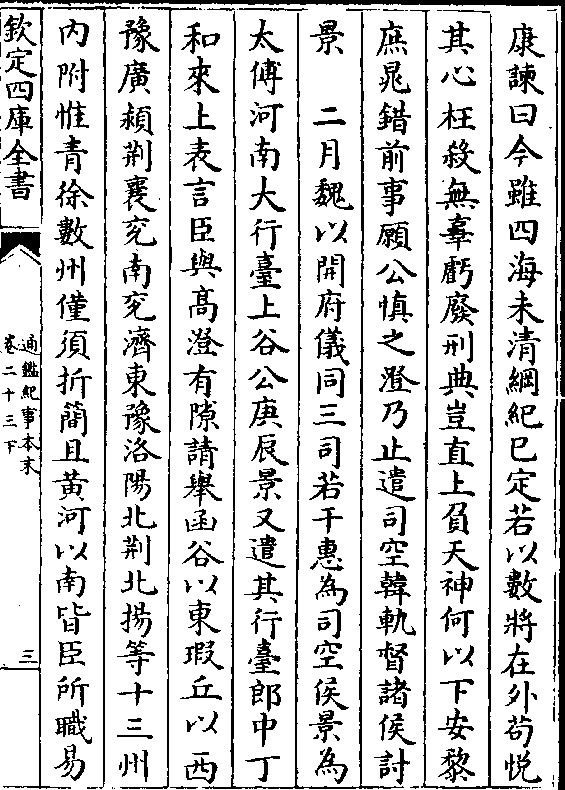 康諫曰今雖四海未清綱紀已定若以數將在外茍悦
其心枉殺無辜虧廢刑典豈直上負天神何以下安黎
庶晁錯前事願公慎之澄乃止遣司空韓軌督諸侯討
景　二月魏以開府儀同三司若干惠為司空侯景為
太傅河南大行臺上谷公庚辰景又遣其行臺郎中丁
和來上表言臣與髙澄有隙請舉函谷以東瑕丘以西
豫廣潁荆襄兖南兖濟東豫洛陽北荆北揚等十三州
内附惟青徐數州僅須折簡且黄河以南皆臣所職易
欽定四庫全書
通鑑紀事本末
卷二十三下
三